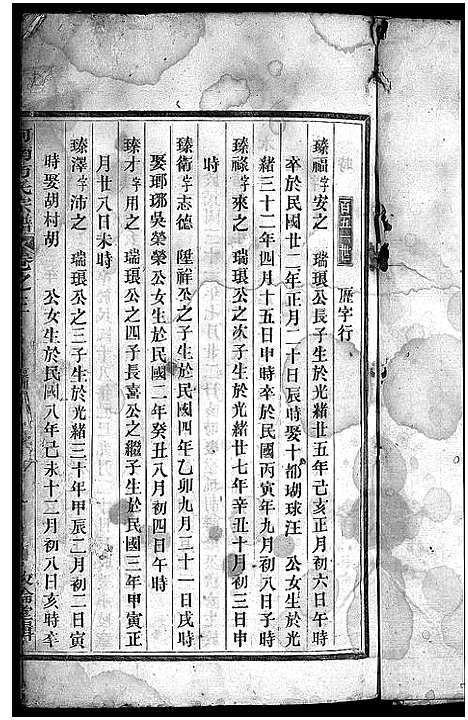 百五世 歷字行
臻福字安之 瑞瑔公長子生於光緒廿五年己亥正月初六日午時
卒於民國廿二年正月二十日辰時娶十都瑚球汪 公女生於光
緒三十二年四月十五日申時卒於民國丙寅年九月初八日子時
臻祿字來之 瑞瑔公之次子生於光緒廿七年辛丑十月初三日申
時
臻衛字志德 陞祥公之子生於民國四年乙卯九月三十一日戌時
娶瑯琊吳榮榮公女生於民國二年癸丑八月初四日午時
臻才字用之 瑞瑔公之四子長嘉公之繼子生於民國三年甲寅正
月廿八日未時
臻澤字沛之 瑞瑔公之三子生於光緒三十年甲辰二月初二日寅
時娶胡村胡 公女生於民國八年己未十二月初八日亥時卒